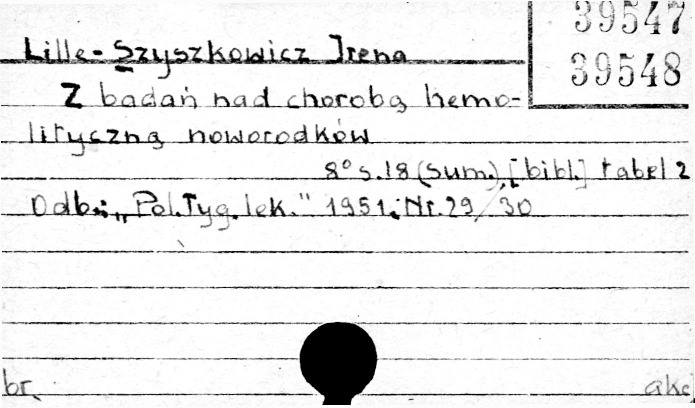 39547
39548
Lille-Szyszkowicz Irena
Z badań nad chorobą hemo-
lityczną noworodków
8° s.18 (sum.), [bibl.] tabel 2
Odb.: „Pol.Tyg.lek." 1951. Nr.29/30
br. akc